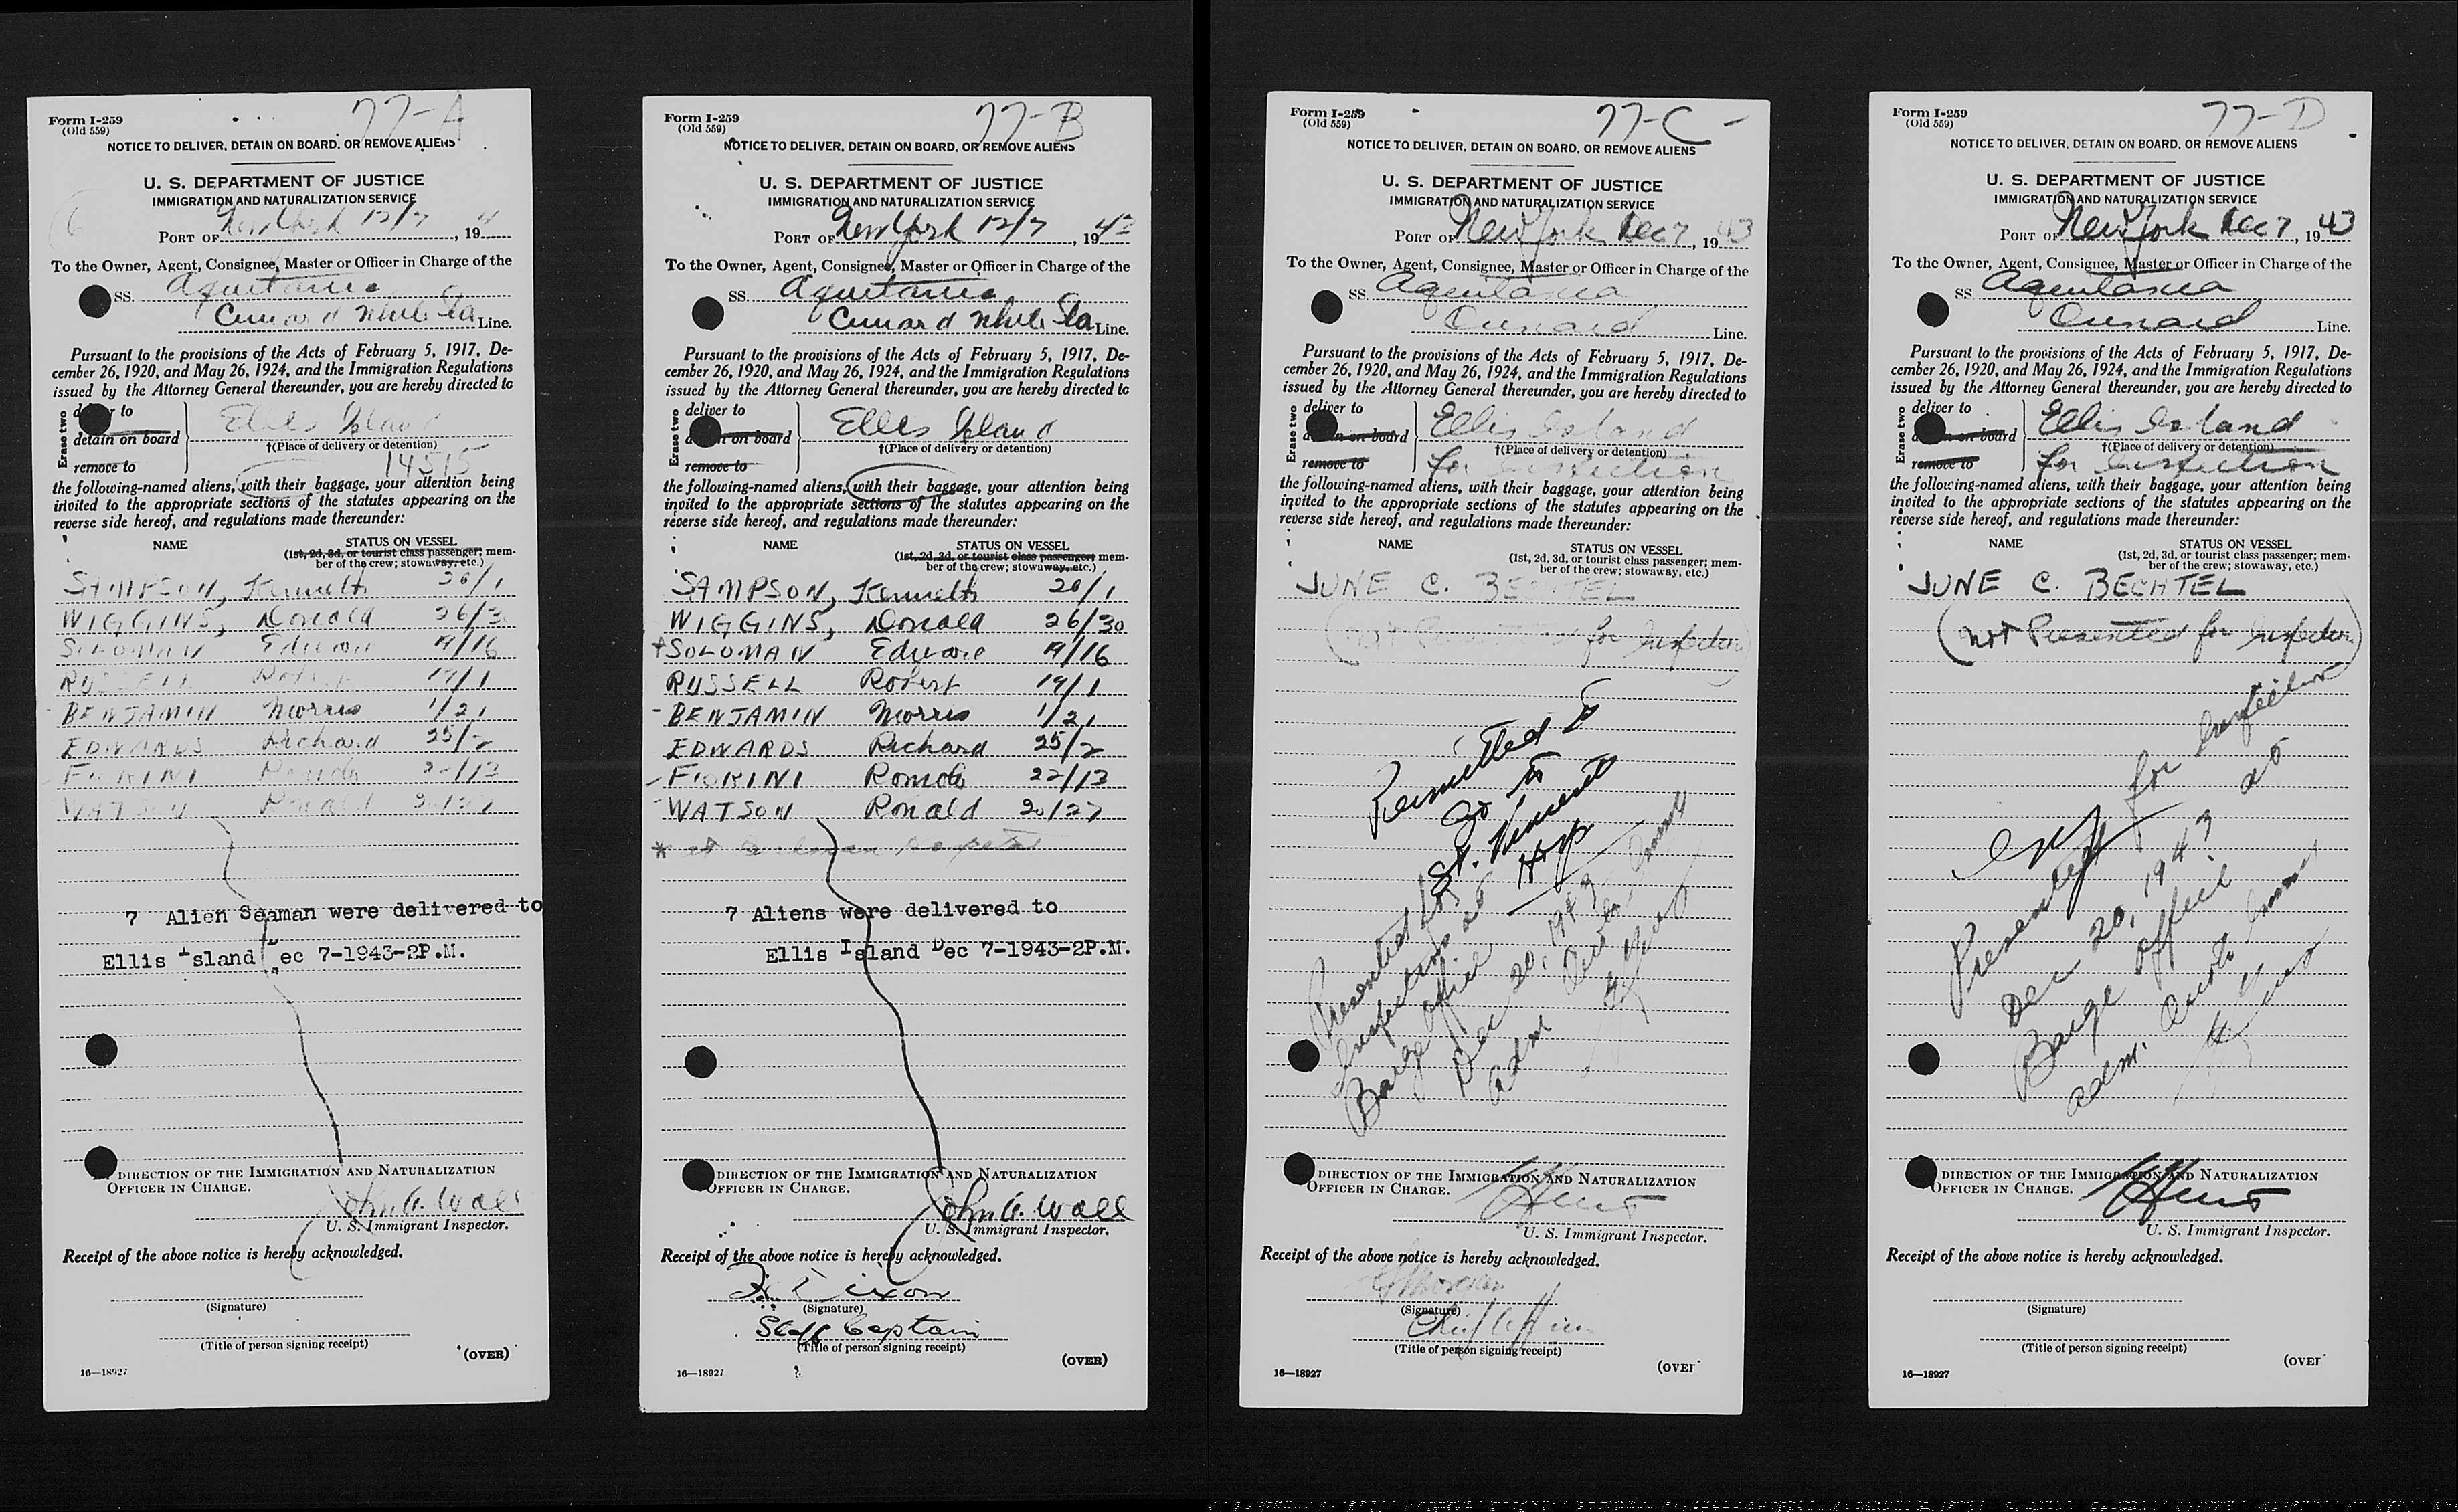 77-A
Form I-259
(Old 559)
NOTICE TO DELIVER, DETAIN ON BOARD, OR REMOVE ALIENS
U. S. DEPARTMENT OF JUSTICE
IMMIGRATION AND NATURALIZATION SERVICE
PORT OF New York 12/7, 194
To the Owner, Agent, Consignee, Master or Officer in Charge of the
SS. Aquitania
Cunard White Sta Line.
Pursuant to the provisions of the Acts of February 5, 1917, De-
cember 26, 1920, and May 26, 1924, and the Immigration Regulations
issued by the Attorney General thereunder, you are hereby directed to
Erase two
to
detain on board
remove to
Ellis Island
†(Place of delivery or detention)
14515
the following-named aliens, with their baggage, your attention being
invited to the appropriate sections of the statutes appearing on the
reverse side hereof, and regulations made thereunder:
NAME
STATUS ON VESSEL
(1st, 2d, 3d, or tourist class passenger; mem-
ber of the crew; stowaway, etc.)
SAMPSON, Kenneth 26/1
WIGGINS, Donald 26/30
SOLOMAN Edward 9/16
RUSSELL Robert 19/1
- BENJAMIN Morris 1/21
EDWARDS Richard 25/2
FIORINI 22/13
WATSON Ronald 20/27
7 Alien Seaman were delivered to
Ellis Island Dec 7-1943-2P.M.
DIRECTION OF THE IMMIGRATION AND NATURALIZATION
OFFICER IN CHARGE.
John A. Wall
U. S. Immigrant Inspector.
Receipt of the above notice is hereby acknowledged.
(Signature)
(Title of person signing receipt)
(OVER)
16—18927
77-B
Form I-259
(Old 559)
NOTICE TO DELIVER, DETAIN ON BOARD, OR REMOVE ALIENS
U. S. DEPARTMENT OF JUSTICE
IMMIGRATION AND NATURALIZATION SERVICE
PORT OF New York 12/7, 1943
To the Owner, Agent, Consignee, Master or Officer in Charge of the
SS. Aquitania
Cunard White Sta Line.
Pursuant to the provisions of the Acts of February 5, 1917, De-
cember 26, 1920, and May 26, 1924, and the Immigration Regulations
issued by the Attorney General thereunder, you are hereby directed to
Erase two
deliver to
on board
remove to
Ellis Island
†(Place of delivery or detention)
the following-named aliens, with their baggage, your attention being
invited to the appropriate sections of the statutes appearing on the
reverse side hereof, and regulations made thereunder:
NAME
STATUS ON VESSEL
(1st, 2d, 3d, or tourist class passenger; mem-
ber of the crew; stowaway, etc.)
SAMPSON, Kenneth 26/1
WIGGINS, Donald 26/30
SOLOMAN Edward 9/16
RUSSELL Robert 19/1
- BENJAMIN Morris 1/21
EDWARDS Richard 25/2
- FIORINI 22/13
- WATSON Ronald 20/27
* at
7 Aliens were delivered to
Ellis Island Dec 7-1943-2P.M.
DIRECTION OF THE IMMIGRATION AND NATURALIZATION
OFFICER IN CHARGE.
John A. Wall
U. S. Immigrant Inspector.
Receipt of the above notice is hereby acknowledged.
Dixon
(Signature)
Staff Captain
(Title of person signing receipt)
(OVER)
16—18927
77-C -
Form I-259
(Old 559)
NOTICE TO DELIVER, DETAIN ON BOARD, OR REMOVE ALIENS
U. S. DEPARTMENT OF JUSTICE
IMMIGRATION AND NATURALIZATION SERVICE
PORT OF New York Dec 7, 1943
To the Owner, Agent, Consignee, Master or Officer in Charge of the
SS. Aquitania
Cunard Line.
Pursuant to the provisions of the Acts of February 5, 1917, De-
cember 26, 1920, and May 26, 1924, and the Immigration Regulations
issued by the Attorney General thereunder, you are hereby directed to
Erase two
deliver to
on board
remove to
Ellis Island
†(Place of delivery or detention)
for Inspection
the following-named aliens, with their baggage, your attention being
invited to the appropriate sections of the statutes appearing on the
reverse side hereof, and regulations made thereunder:
NAME
STATUS ON VESSEL
(1st, 2d, 3d, or tourist class passenger; mem-
ber of the crew; stowaway, etc.)
JUNE C. BECHTEL
(not Presented for Inspection)
Permitted to
go to
St. Vincents
Hosp
Presented for
Inspection at
Barge Office
Dec 20, 1943
adm
DIRECTION OF THE IMMIGRATION AND NATURALIZATION
OFFICER IN CHARGE.
U. S. Immigrant Inspector.
Receipt of the above notice is hereby acknowledged.
(Signature)
Chief Officer
(Title of person signing receipt)
(OVER
16—18927
77-D
Form I-259
(Old 559)
NOTICE TO DELIVER, DETAIN ON BOARD, OR REMOVE ALIENS
U. S. DEPARTMENT OF JUSTICE
IMMIGRATION AND NATURALIZATION SERVICE
PORT OF New York Dec 7, 1943
To the Owner, Agent, Consignee, Master or Officer in Charge of the
SS Aquitania
Cunard Line.
Pursuant to the provisions of the Acts of February 5, 1917, De-
cember 26, 1920, and May 26, 1924, and the Immigration Regulations
issued by the Attorney General thereunder, you are hereby directed to
Erase two
deliver to
on board
remove to
Ellis Island
†(Place of delivery or detention)
for Inspection
the following-named aliens, with their baggage, your attention being
invited to the appropriate sections of the statutes appearing on the
reverse side hereof, and regulations made thereunder:
NAME
STATUS ON VESSEL
(1st, 2d, 3d, or tourist class passenger; mem-
ber of the crew; stowaway, etc.)
JUNE C. BECHTEL
(not Presented for Inspection)
Presented for Inspection
Dec 20, 1943 at
Barge Office
adm.
DIRECTION OF THE IMMIGRATION AND NATURALIZATION
OFFICER IN CHARGE.
U. S. Immigrant Inspector.
Receipt of the above notice is hereby acknowledged.
(Signature)
(Title of person signing receipt)
(OVER
16—18927